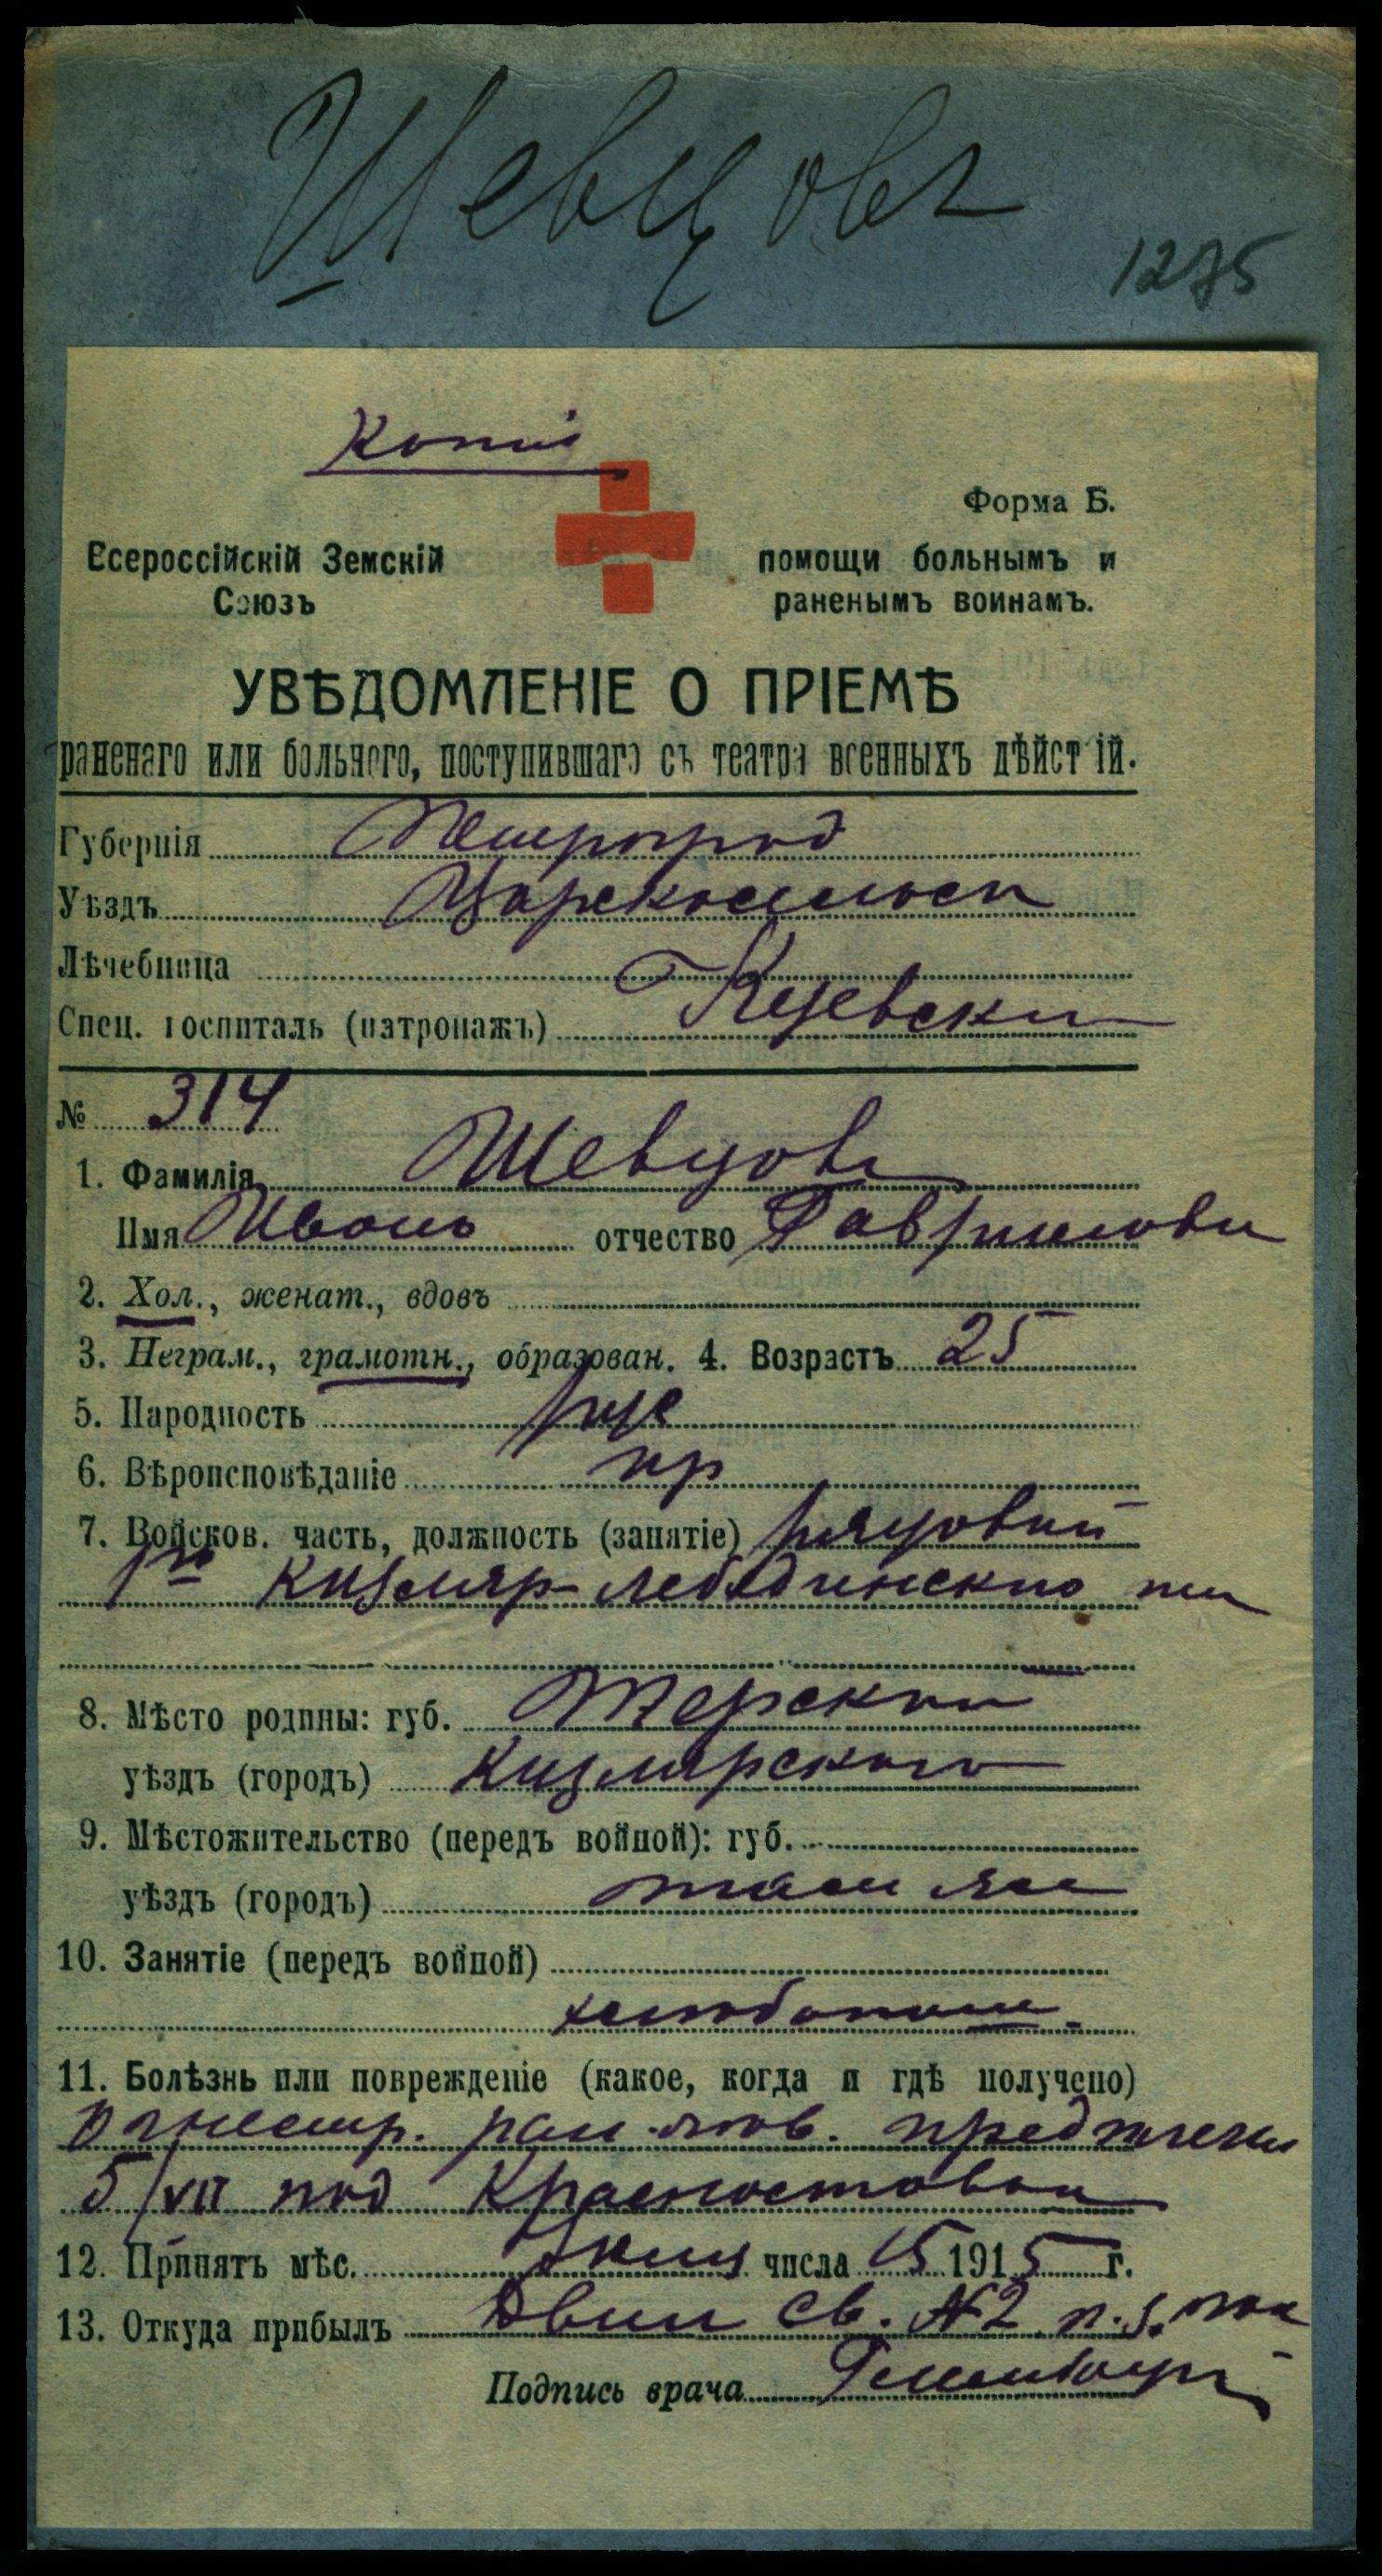 Шевцовъ
1275
Копія
Форма Б.
Всероссійскій Земскій
Союзъ
помощи больнымъ и
раненымъ воинамъ.
УВѢДОМЛЕНІЕ О ПРІЕМѢ
раненаго или больного, поступившаго съ театра военныхъ дѣйствій.
Губернія Петроград
Уѣздъ Царскосельск
Лѣчебница
Спец. госпиталь (патронажъ)
№ 314
1. Фамилія Шевцовъ
Имя Иванъ отчество Гаврилови
2. Хол., женат., вдовъ
3. Неграм., грамотн., образован. 4. Возрастъ 25
5. Народность рус
6. Вѣроисповѣданіе пр
7. Войсков. часть, должность (занятіе) рядовой
1го Кизляр-
8. Мѣсто родины: губ. Терской
уѣздъ (городъ) Кизлярскаго
9. Мѣстожительство (передъ войной): губ.
уѣздъ (городъ)
10. Занятіе (передъ войной)
хлѣбопаш.
11. Болѣзнь или поврежденіе (какое, когда и гдѣ получено)
Огнестр. ран. лѣв. предплечья
5/VII под Красноставом
12. Принятъ мѣс. числа 15 1915 г.
13. Откуда прибылъ Двин св. №2
Подпись врача